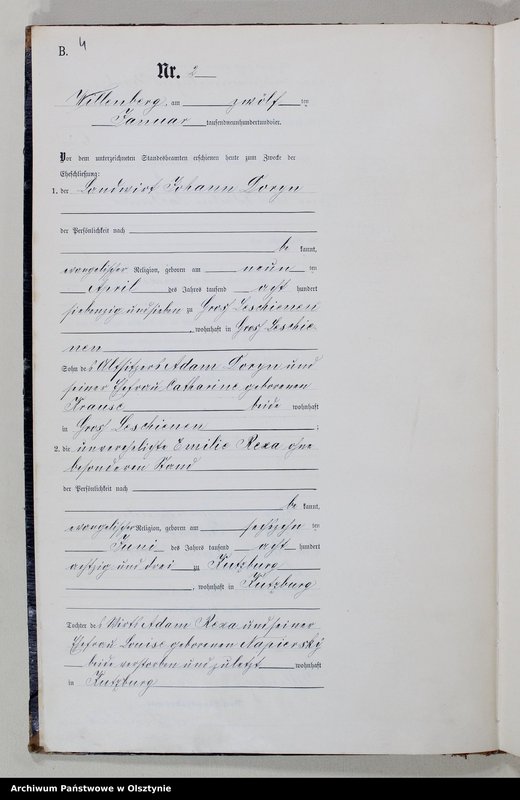 B. 4
Nr. 2
Willenberg, am zwölf ten
Januar tausendneunhundertundvier.
Vor dem unterzeichneten Standesbeamten erschienen heute zum Zwecke der
Eheschließung:
1. der Landwirt Johann Doryn
der Persönlichkeit nach
be kannt,
evangelischer Religion, geboren am neun ten
April des Jahres tausend acht hundert
siebenzig und sieben zu Groß Leschienen
, wohnhaft in Groß Leschie
nen
Sohn des Altsitzers Adam Doryn und
seiner Ehefrau Catharine geborenen
Krause beide wohnhaft
in Groß Leschienen ;
2. die unverehelichte Emilie Rexa ohne
besonderen Stand
der Persönlichkeit nach
be kannt,
evangelischer Religion, geboren am sechzehn ten
Juni des Jahres tausend acht hundert
achtzig und drei zu Kutzburg
, wohnhaft in Kutzburg
Tochter des Wirts Adam Rexa und seiner
Ehefrau Louise geborenen Napierski
beide verstorben und zuletzt wohnhaft
in Kutzburg
Archiwum Państwowe w Olsztynie